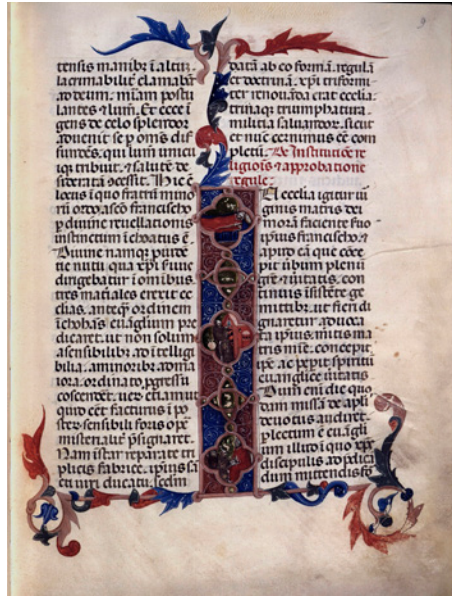 tensis manibꝫ ⁊ altiz
lacrimabilit̃ clamabãt
ad deum. mĩam postu
lantes ⁊ lum̃. Et ecce ĩ
gens de celo splendor
aduenit se ꝑ om̃s dif
fundẽs, qui lum̃ unicu
iqꝫ tribuit, ⁊ salutẽ de
siderata
locus ĩ quo fratrũ mino
rũ ordo, a sc̃o francisco
ꝑ diuine reuellationis
instinctum ĩchoatus ẽ.
Diuine namqꝫ ꝓuidẽ
tie nutu, qua xp̃i
dirigebatur ĩ omĩbus,
tres mat̃iales erexit ec
clias, anteqꝫ ordinem
ĩchohãs euãgelium pre
dicaret. ut non solum
a sensibilibꝫ ad ĩtelligi
bilia, a minoribꝫ ad ma
iora, ordinato ꝓgressu
coscenderet. uerũ etiam ut
quid eẽt facturus ĩ po
ster̃. sensibili foris ope
misterialit̃ p̃signaret.
Nam ĩstar reparate tri
plicis fabrice. ipius sã
cti uiri ducatu. scdm
9
datã ab eo formã. regulã
et doctrinã. xp̃i triformi
ter renouãda erat ecclia.
trinaqꝫ triumphatura
militia saluandoꝝ. sicut
et nũc cernimus eẽ com
pletũ. De institucõe re
ligiois ⁊ approbatione
regule.
ecclia igitur uir
ginis matris dei
morã faciente suo
ipius francischo. ⁊
apud eã que cõce
pit ũbum plenũ
gre ⁊ ueritatis, con
tinuis ĩsistẽte ge
mittibꝫ, ut fieri di
gnaretur aduoca
ta ipius. mitis ma
tris mie. concepit
ipẽ ac peperit spiritũ
euangelice ueritatis.
Dum eni die quo
dam missã de apl̃i
deuotus audiret.
plectum ẽ euãgli
um illud ĩ quo xp̃s
discipulis ad p̃dica
dum mittendis fo